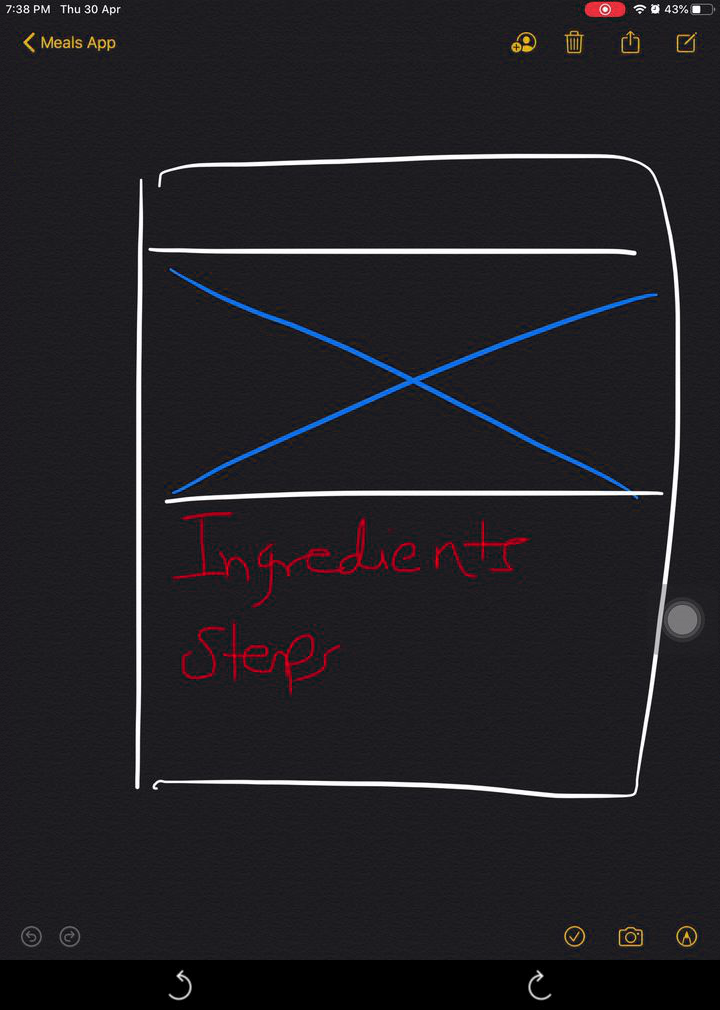 7:38 PM Thu 30 Apr 43%
Meals App
Ingredients
Steps